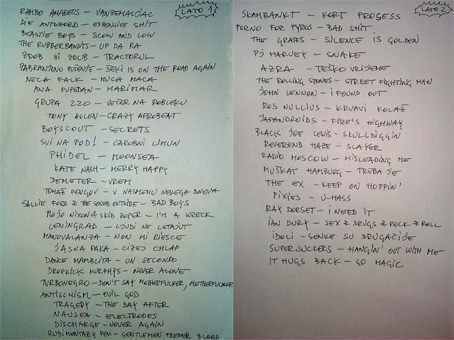 LATO 1
RAMBO AMADEUS - VANZEMALJAC
DIE ANTWOORD - EXPENSIVE SHIT
BEASTIE BOYS - SLOW AND LOW
THE RUBBERBANDITS - UP DA RA
ZDOB SI ZDUB - TRACTORUL
ZABRANJENO PUŠENJE - JEŽI IS ON THE ROAD AGAIN
NECA FALK - MUCA MACA
ANA PUPEDAN - MARIMAR
GRUPA 220 - VEČER NA ROBLEKU
TONY ALLEN - CRAZY AFROBEAT
BOYSCOUT - SECRETS
SVI NA POD! - ZAROBNI LIMUN
PHIDEL - MOONSEA
KATE NASH - MERRY HAPPY
DEMETER - VRETI
TOMAŽ PENGOV - V NASMEHU NEKEGA DNEVA
SALLIE FORD & THE SOUND OUTSIDE - BAD BOYS
MOJO NIXON & SKID ROPER - I'M A WRECK
LENINGRAD - LJUDI NE LETAJUT
MANOVALANZA - NON MI RIESCE
JASNA PAKA - CIZEJ CHLAP
DANKE MAMBLITA - UN SECONDO
DROPKICK MURPHYS - NEVER ALONE
TURBONEGRO - DON'T SAY MOTHERFUCKER, MOTHERFUCKER
ANTISCHISM - EVIL GOD
TRAGEDY - THE DAY AFTER
NAUSEA - ELECTRODES
DISCHARGE - NEVER AGAIN
RUDIMENTARY PENI - GENTLEMEN PREFER BLOOD
LATO 2
SKAMBANKT - KORT PROSESS
PORNO FOR PYROS - BAD SHIT
THE GRATES - SILENCE IS GOLDEN
PJ HARVEY - SNAKE
AZRA - TEŠKO VRIJEME
THE ROLLING STONES - STREET FIGHTING MAN
JOHN LENNON - I FOUND OUT
RES NULLIUS - KRVAVI KOLAŽ
JAPANDROIDS - FIRE'S HIGHWAY
BLACK JOE LEWIS - SKULLDIGGIN
REVEREND MAZE - SLAYER
RADIO MOSCOW - MISLEADING ME
MUŠKAT HAMBURG - TREBA JE
THE EX - KEEP ON HOPPIN'
PIXIES - U-MASS
RAY DORSET - I NEED IT
IAN DURY - SEX & DRUGS & ROCK & ROLL
IDOLI - SENKE SU DRUGAČIJE
SUPERSUCKERS - HANGIN' OUT WITH ME
IT HUGS BACK - GO MAGIC